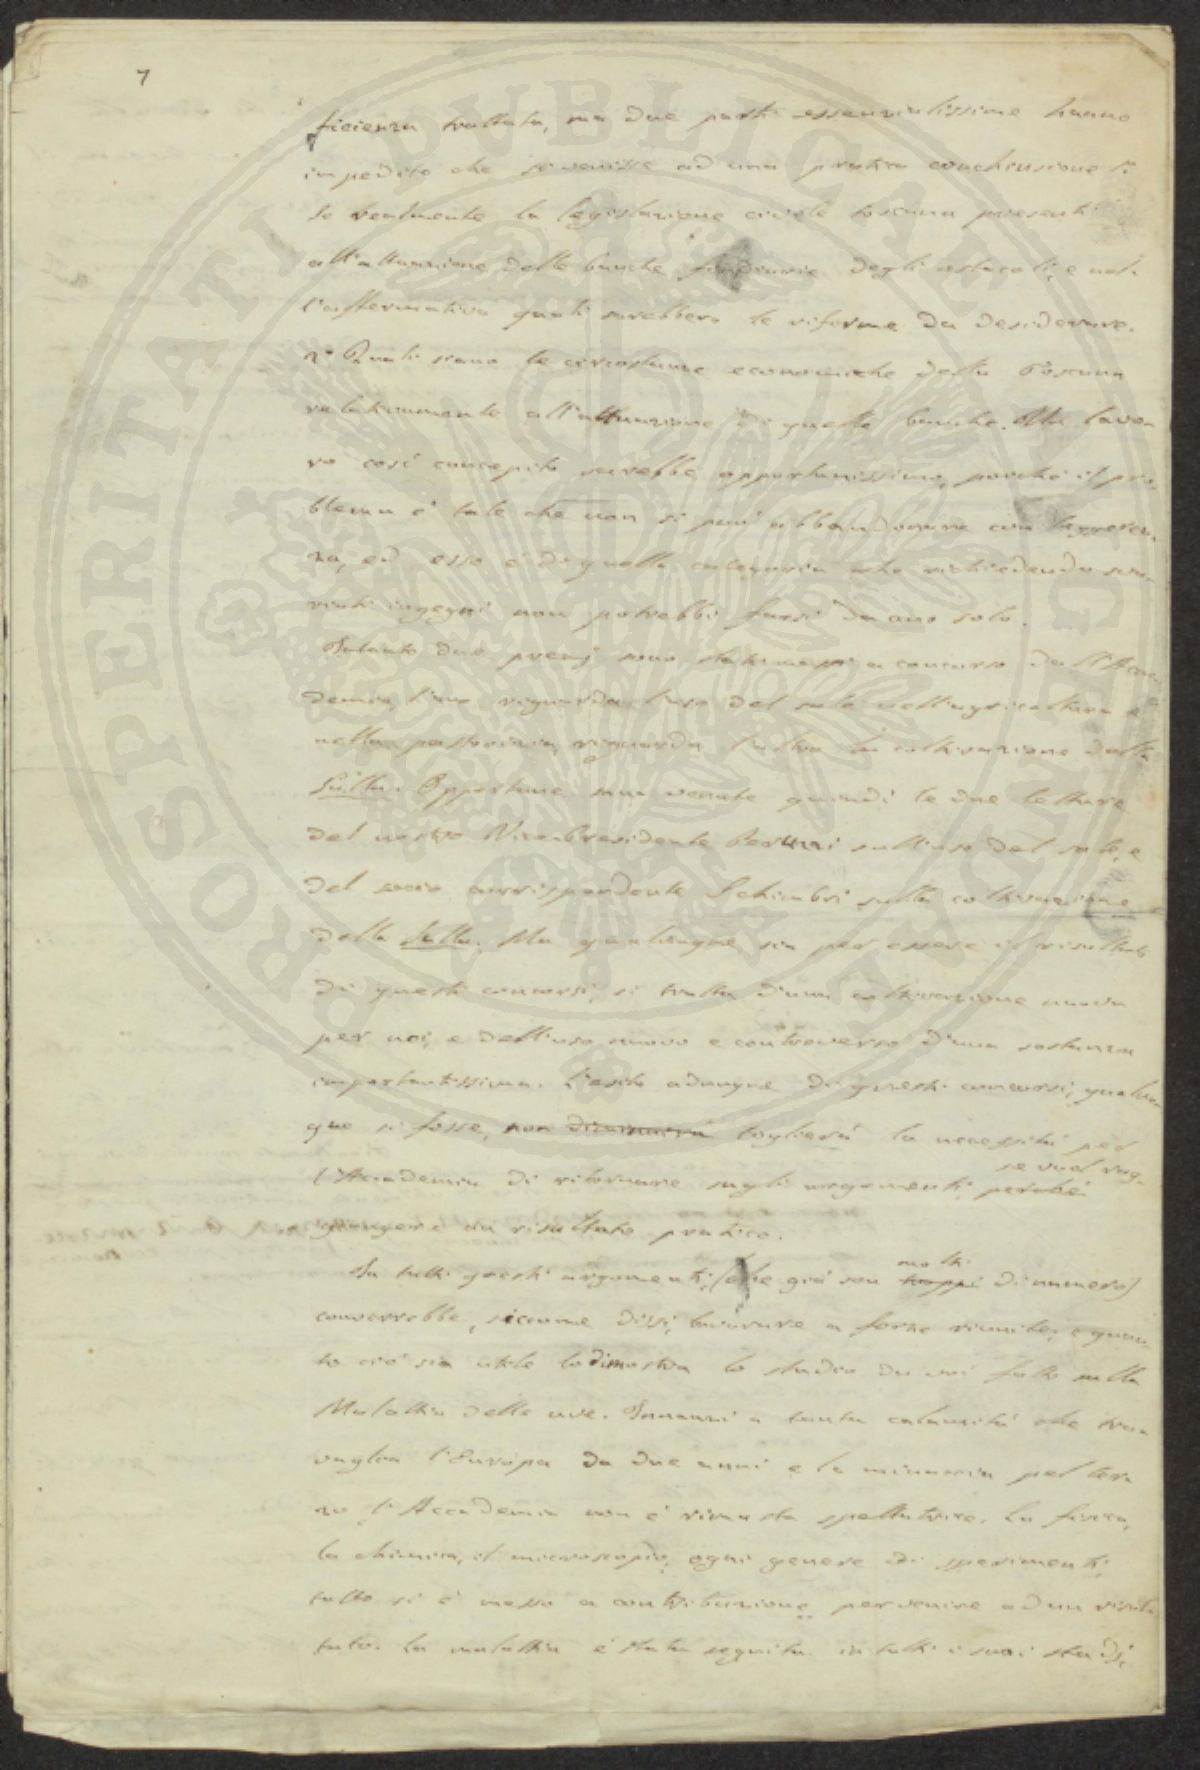 7
ficienza trattata, ma due parti essenzialissime hanno
impedito che si venisse ad una pratica conchiusione 1.º
Se realmente la legislazione civile toscana presenti
all'attuazione delle banche fondiarie degli ostacoli, e nel-
l'affermativa quali sarebbero le riforme da desiderare.
2º Quali siano le circostanze economiche della Toscana
relativamente all'attuazione di queste banche. Un lavo-
ro così concepito sarebbe opportunissimo, poiché il pro-
blema è tale che non si può abbandonare con leggerez-
za, ed esso è di quella categoria che richiedendo sva-
riati ingegni non potrebbe farsi da uno solo.
Intanto due premj sono stati messi a concorso dall'Acca-
demia, l'uno riguarda l'uso del sale nell'agricoltura e
nella pastorizia, riguarda l'altro la coltivazione della
Sulla. Opportune son venute quindi le due letture
del nostro Vice-Presidente sull'uso del sale, e
del socio corrispondente sulla coltivazione
della Sulla. Ma qualunque sia per essere il risultato
di questi concorsi, si tratta d'una coltivazione nuova
per noi, e dell'uso nuovo e controverso d'una sostanza
importantissima. L'esito adunque di questi concorsi, qualun-
que si fosse, non diminuirà toglierà la necessità per
l'Accademia di ritornare sugli argomenti, perché
se vuol rag-
giungere un risultato pratico.
In tutti questi argomenti, (che già son troppi molti di numero)
converrebbe, siccome dissi, lavorare a forze riunite; e quan-
to ciò sia utile lo dimostra lo studio da voi fatto sulla
Malattia delle uve. Innanzi a tanta calamità che tra-
vaglia l'Europa da due anni e la minaccia pel ter-
zo l'Accademia non è rimasta spettatrice. La fisica,
la chimica, il microscopio, ogni genere di sperimenti,
tutto si è messo a contribuzione per venire ad un risul-
tato. La malattia è stata seguita in tutti i suoi stadj,